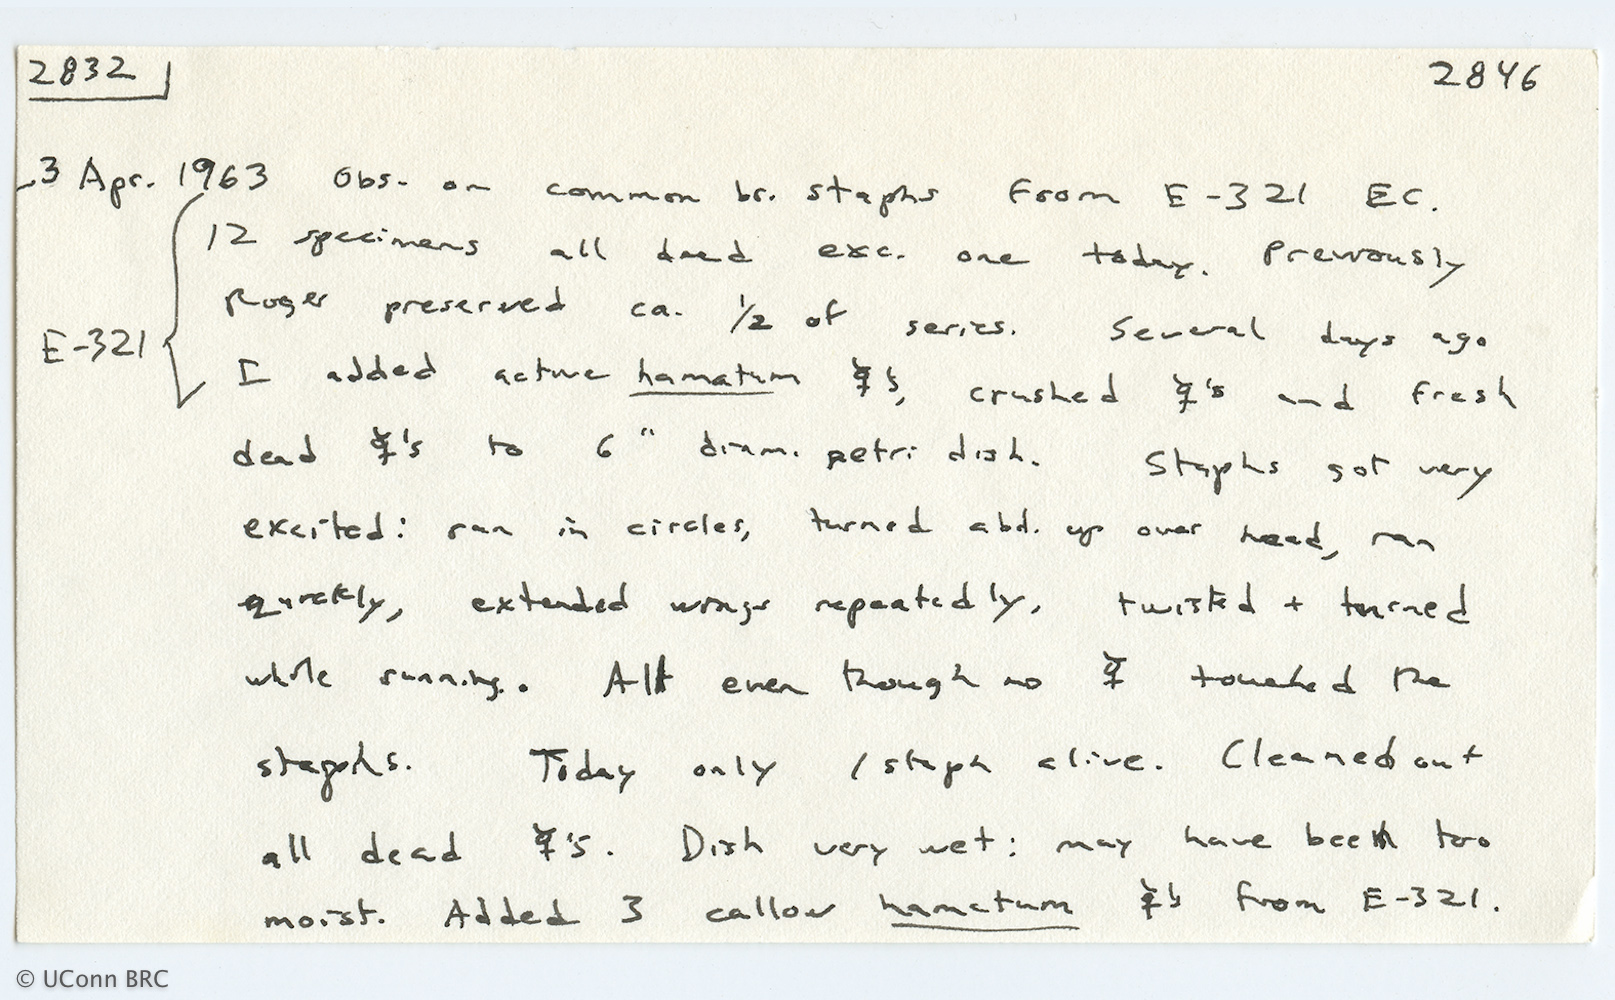 2832 2846
3 Apr. 1963 Obs. on common br. staphs from E-321 EC.
12 specimens all dead exc. one today. Previously
Roger preserved ca. 1/2 of series. Several days ago
E-321
I added active hamatum ☿'s, crushed ☿'s and fresh
dead ☿'s to 6" diam. petri dish. Staphs got very
excited: ran in circles, turned abd. up over head, ran
quickly, extended wings repeatedly, twisted + turned
while running. All even though no ☿ touched the
staphs. Today only 1 staph alive. Cleaned out
all dead ☿'s. Dish very wet: may have been too
moist. Added 3 callow hamatum ☿'s from E-321.
© UConn BRC